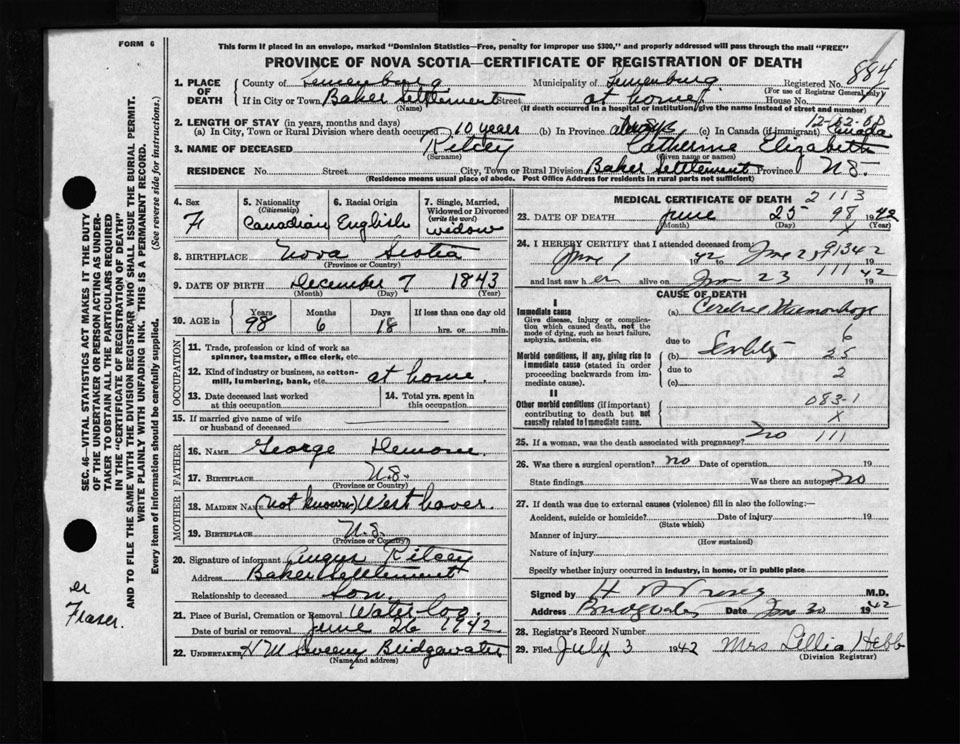 FORM 6
This form if placed in an envelope, marked "Dominion Statistics—Free, penalty for improper use $300," and properly addressed will pass through the mail "FREE"
PROVINCE OF NOVA SCOTIA—CERTIFICATE OF REGISTRATION OF DEATH
884
1. PLACE OF DEATH County of Lunenburg Municipality of Lunenburg Registered No.
(For use of Registrar General only)
If in City or Town Baker Settlement Street at home House No.
(Name) (If death occurred in a hospital or institution, give its name instead of street and number)
12-02-08
2. LENGTH OF STAY (in years, months and days)
(a) In City, Town or Rural Division where death occurred 10 years (b) In Province always (c) In Canada (if immigrant) Canada
3. NAME OF DECEASED Ritcey Catherine Elizabeth
(Surname) (Given name or names)
RESIDENCE No. Street City, Town or Rural Division Baker Settlement Province N.S.
(Residence means usual place of abode. Post Office Address for residents in rural parts not sufficient)
4. Sex F
5. Nationality (Citizenship) Canadian
6. Racial Origin English
7. Single, Married, Widowed or Divorced (write the word) widow
8. BIRTHPLACE Nova Scotia
(Province or Country)
9. DATE OF BIRTH December 7 1843
(Month) (Day) (Year)
10. AGE in Years Months Days If less than one day old
98 6 18 hrs. or min.
OCCUPATION
11. Trade, profession or kind of work as spinner, teamster, office clerk, etc.
12. Kind of industry or business, as cotton-mill, lumbering, bank, etc. at home.
13. Date deceased last worked at this occupation
14. Total yrs. spent in this occupation
15. If married give name of wife or husband of deceased
FATHER
16. NAME George
17. BIRTHPLACE N.S.
(Province or Country)
MOTHER
18. MAIDEN NAME (not known) Westhaver.
19. BIRTHPLACE N.S.
(Province or Country)
20. Signature of informant Angus Ritcey
Address Baker Settlement
Relationship to deceased Son.
21. Place of Burial, Cremation or Removal Waterloo.
Date of burial or removal June 26 1942
22. UNDERTAKER H M Sweeny Bridgewater
(Name and address)
MEDICAL CERTIFICATE OF DEATH 2113
23. DATE OF DEATH June 25 98 1942
(Month) (Day) (Year)
X
24. I HEREBY CERTIFY that I attended deceased from:
June 1 1942 to June 25 91342
and last saw her alive on June 23 111 42
CAUSE OF DEATH
I
Immediate cause
Give disease, injury or complication which caused death, not the mode of dying, such as heart failure, asphyxia, asthenia, etc.
(a) Cerebral Haemorrhage
6
due to
Morbid conditions, if any, giving rise to immediate cause (stated in order proceeding backwards from immediate cause).
(b) Senility 35
due to 2
(c)
II
Other morbid conditions (if important) contributing to death but not causally related to immediate cause.
083-1
X
25. If a woman, was the death associated with pregnancy? no 111
26. Was there a surgical operation? no Date of operation 19
State findings Was there an autopsy? no
27. If death was due to external causes (violence) fill in also the following:—
Accident, suicide or homicide? Date of injury 19
(State which)
Manner of injury
(How sustained)
Nature of injury
Specify whether injury occurred in industry, in home, or in public place
Signed by M.D.
Address Bridgewater Date June 30 1942
28. Registrar's Record Number
29. Filed July 3 1942 Mrs Lillia Hebb
(Division Registrar)
SEC. 46—VITAL STATISTICS ACT MAKES IT THE DUTY
OF THE UNDERTAKER OR PERSON ACTING AS UNDER-
TAKER TO OBTAIN ALL THE PARTICULARS REQUIRED
IN THE "CERTIFICATE OF REGISTRATION OF DEATH"
AND TO FILE THE SAME WITH THE DIVISION REGISTRAR WHO SHALL ISSUE THE BURIAL PERMIT.
WRITE PLAINLY WITH UNFADING INK. THIS IS A PERMANENT RECORD.
Every item of information should be carefully supplied. (See reverse side for instructions.)
Fraser.